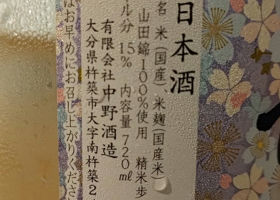 日本酒
名 米(国産)、米麹(国産米)
山田錦100%使用 精米歩
ル分 15% 内容量 720㎖
有限会社中野酒造
大分県杵築市大字南杵築2
はお早めにお召し上がりくださ